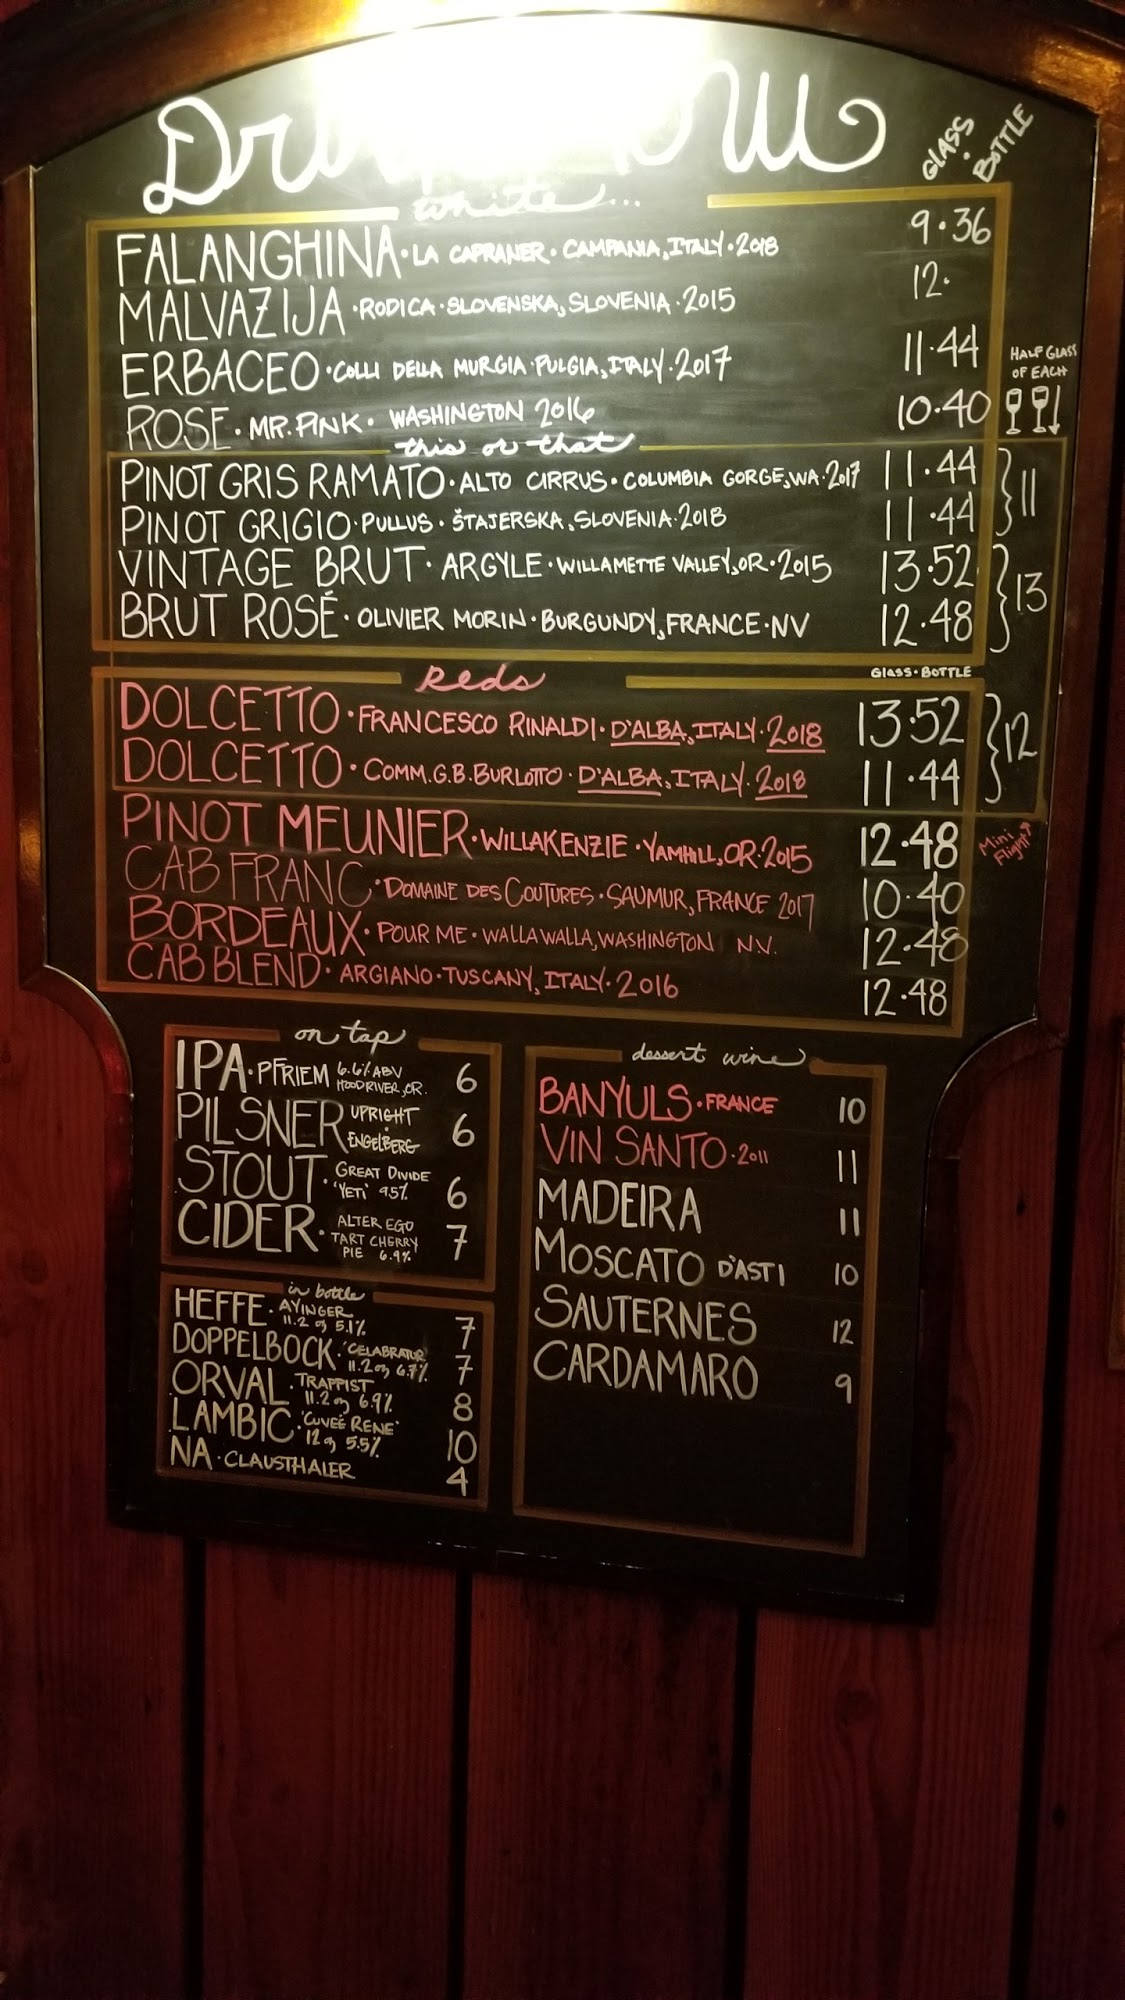 GLASS · BOTTLE
white...
FALANGHINA · LA CAPRANER · CAMPANIA, ITALY · 2018 9 · 36
MALVAZIJA · RODICA · SLOVENSKA, SLOVENIA · 2015 12 ·
ERBACEO · COLLI DELLA MURGIA · PULGIA, ITALY · 2017 11 · 44
ROSE · MR. PINK · WASHINGTON 2016 10 · 40
HALF GLASS
OF EACH
this or that
PINOT GRIS RAMATO · ALTO CIRRUS · COLUMBIA GORGE, WA · 2017 11 · 44
PINOT GRIGIO · PULLUS · ŠTAJERSKA, SLOVENIA · 2018 11 · 44
11
VINTAGE BRUT · ARGYLE · WILLAMETTE VALLEY, OR · 2015 13 · 52
BRUT ROSÉ · OLIVIER MORIN · BURGUNDY, FRANCE · NV 12 · 48
13
Reds
GLASS · BOTTLE
DOLCETTO · FRANCESCO RINALDI · D'ALBA, ITALY · 2018 13 · 52
DOLCETTO · COMM. G.B. BURLOTTO · D'ALBA, ITALY · 2018 11 · 44
12
PINOT MEUNIER · WILLAKENZIE · YAMHILL, OR · 2015 12 · 48
Mini
Flight
CAB FRANC · DOMAINE DES COUTURES · SAUMUR, FRANCE 2017 10 · 40
BORDEAUX · POUR ME · WALLA WALLA, WASHINGTON N.V. 12 · 48
CAB BLEND · ARGIANO · TUSCANY, ITALY · 2016 12 · 48
on tap
IPA · PFRIEM 6.6% ABV 6
HOOD RIVER, OR.
PILSNER UPRIGHT 6
ENGELBERG
STOUT · GREAT DIVIDE 6
'YETI' 9.5%
CIDER · ALTER EGO 7
TART CHERRY
PIE 6.9%
in bottle
HEFFE · AYINGER 7
11.2 oz 5.1%
DOPPELBOCK · 'CELABRATOR' 7
11.2 oz 6.7%
ORVAL · TRAPPIST 8
11.2 oz 6.9%
LAMBIC · 'CUVEÉ RENE' 10
12 oz 5.5%
NA · CLAUSTHALER 4
dessert wine
BANYULS · FRANCE 10
VIN SANTO · 2011 11
MADEIRA 11
MOSCATO D'ASTI 10
SAUTERNES 12
CARDAMARO 9